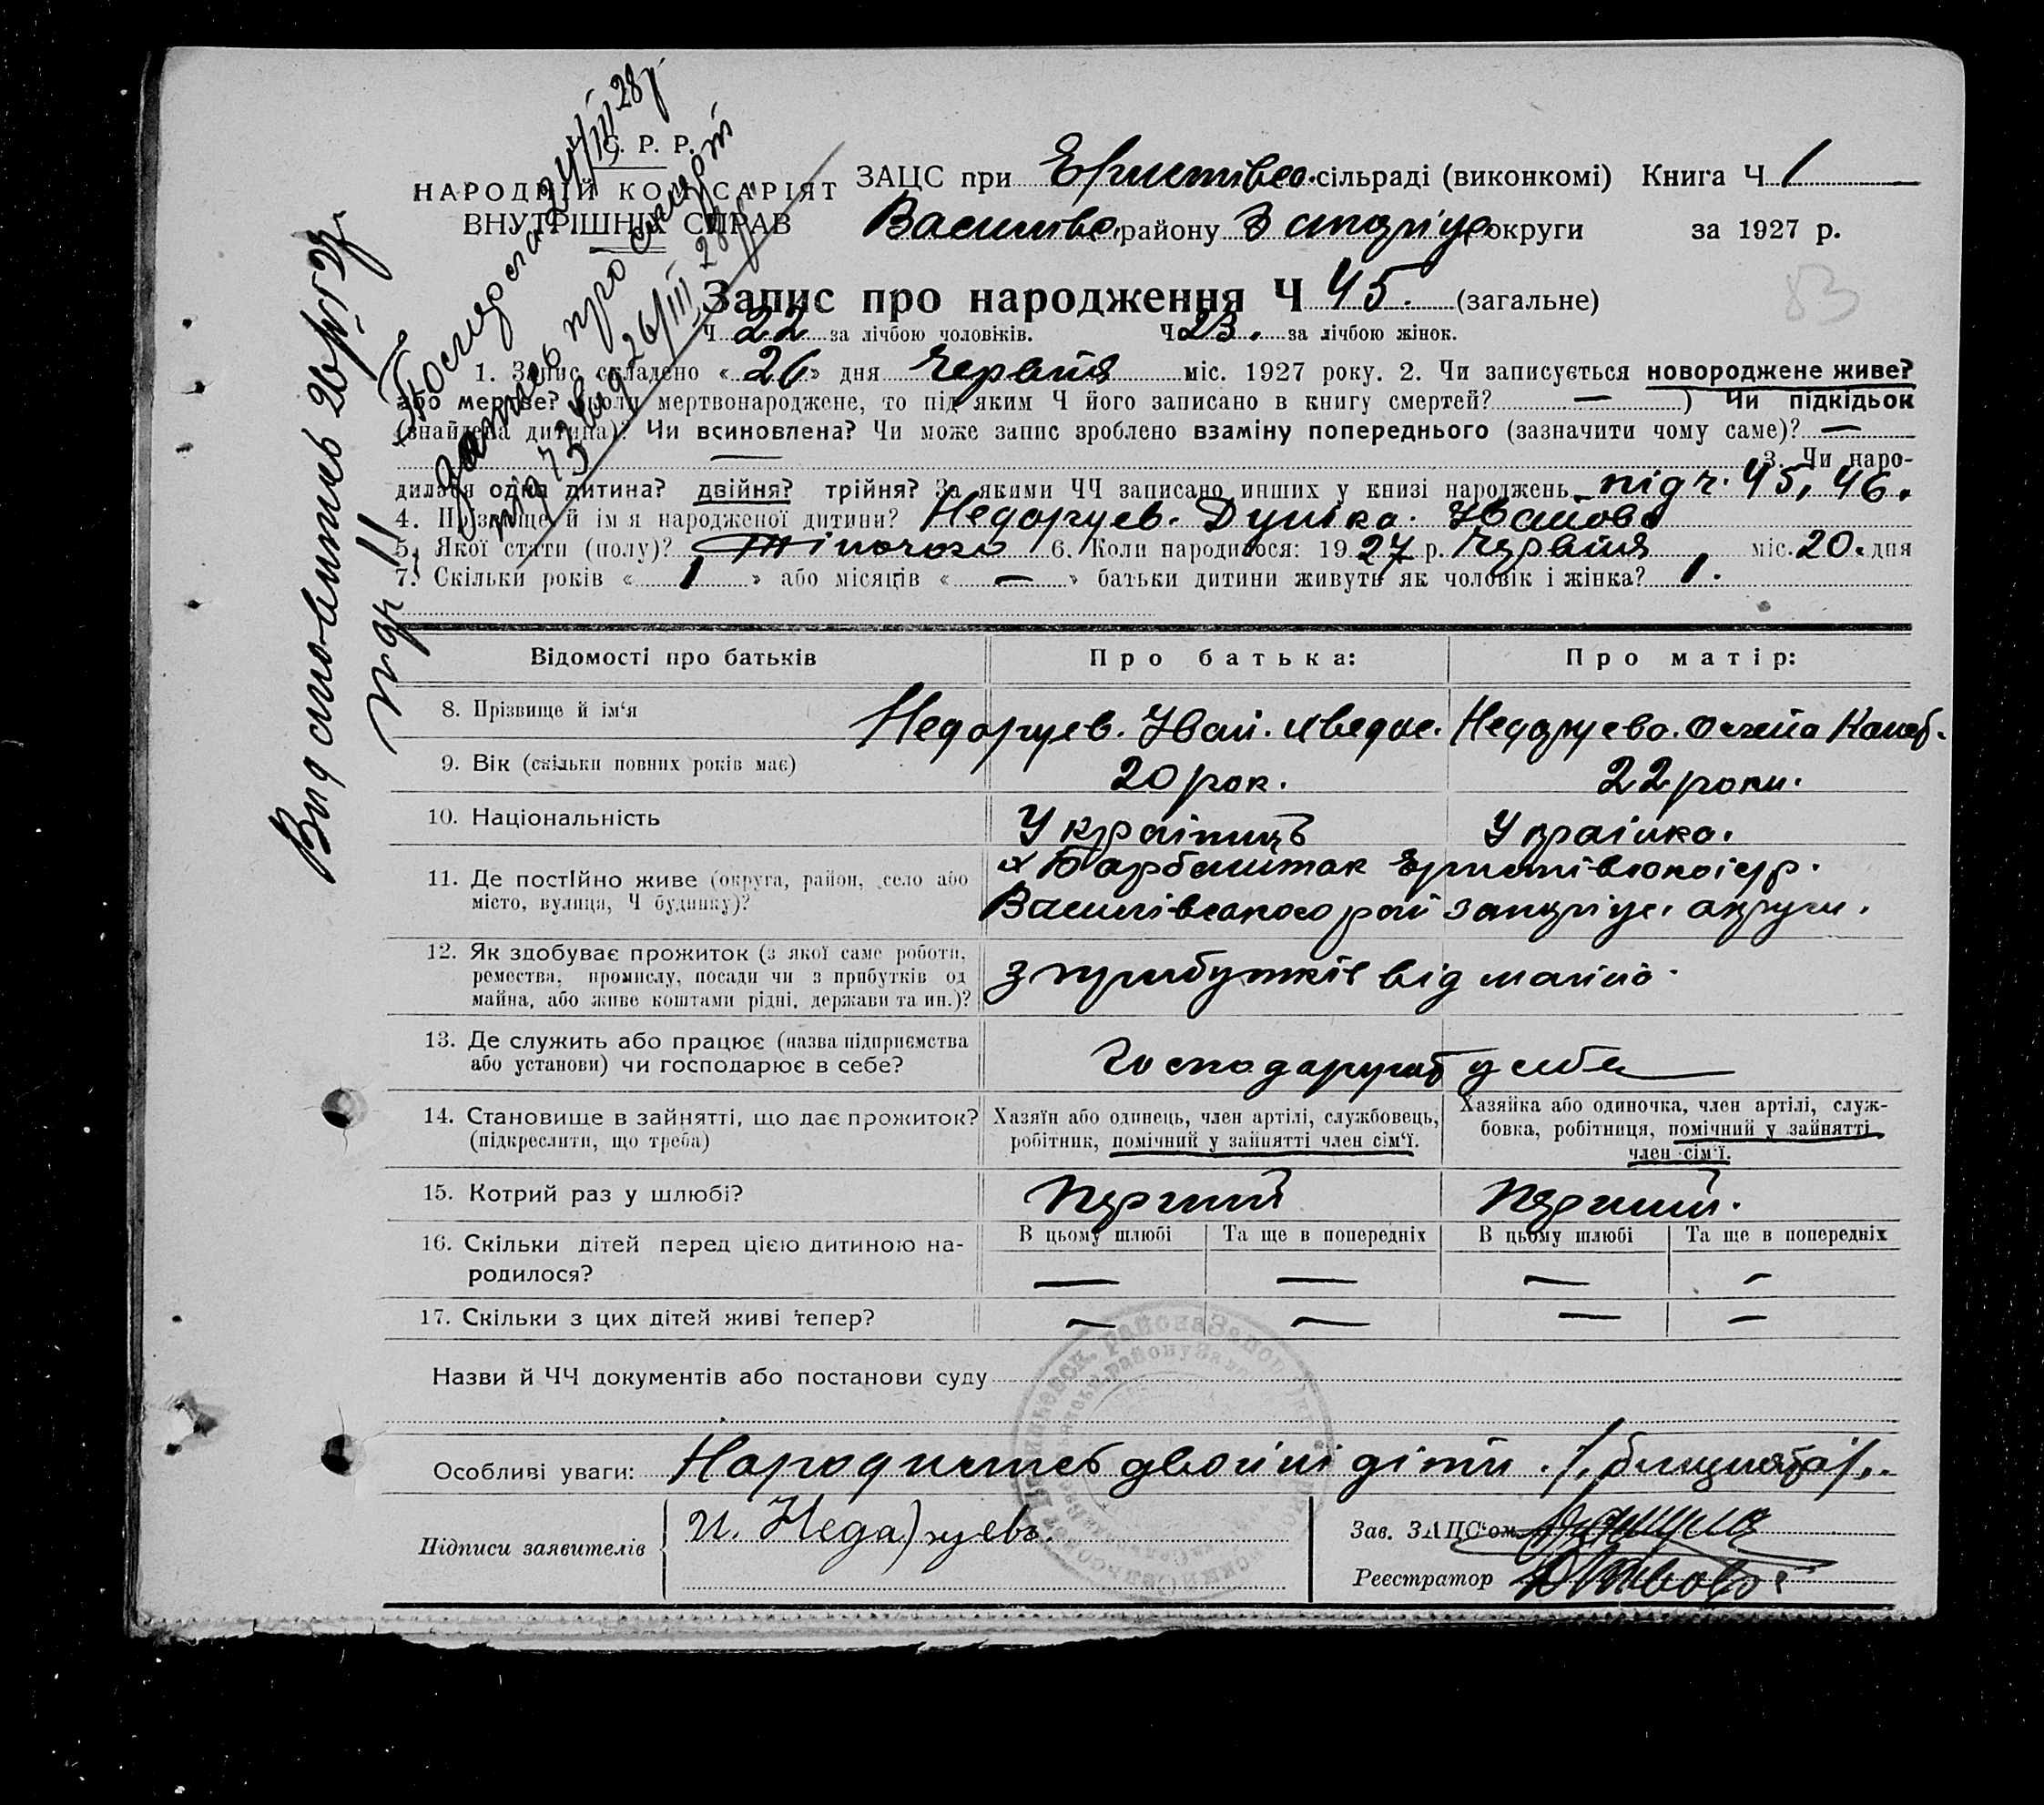 У. С. Р. Р.
НАРОДНІЙ КОМІСАРІЯТ
ВНУТРІШНІХ СПРАВ
ЗАЦС при Ористівсо. сільраді (виконкомі) Книга Ч 1
Василівс. району Запоріус округи за 1927 р.
Запис про народження Ч 45. (загальне)
Ч 22 за лічбою чоловіків. Ч 23. за лічбою жінок.
1. Запис складено «26» дня Червня міс. 1927 року. 2. Чи записується новороджене живе?
або мертве? (коли мертвонароджене, то під яким Ч його записано в книгу смертей? — ) Чи підкідьок
(знайдена дитина)? Чи всиновлена? Чи може запис зроблено взаміну попереднього (зазначити чому саме)? —
— 3. Чи наро-
дилася одна дитина? двійня? трійня? За якими ЧЧ записано инших у книзі народжень під ч. 45, 46.
4. Прізвище й ім'я народженої дитини? Недоруев. Дунька. Иванов
5. Якої статі (полу)? Жіночого 6. Коли народилося: 1927 р. Червня міс. 20. дня
7. Скільки років «1» або місяців «—» батьки дитини живуть як чоловік і жінка? 1.
Відомості про батьків Про батька: Про матір:
8. Прізвище й ім'я Недоруев. Иван. Недоруева.
9. Вік (скільки повних років має) 20 рок. 22 роки.
10. Національність Українець Українка.
11. Де постІйно живе (округа, район, село або
місто, вулиця, Ч будинку)?
х Барбаштак
Василівського рай Запоріує. округи.
12. Як здобуває прожиток (з якої саме роботи,
ремества, промислу, посади чи з прибутків од
майна, або живе коштами рідні, держави та ин.)?
з прибутків від майна.
13. Де служить або працює (назва підприємства
або установи) чи господарює в себе?
Господарують у себе
14. Становище в зайнятті, що дає прожиток?
(підкреслити, що треба)
Хазяїн або одинець, член артілі, службовець,
робітник, помічний у зайнятті член сім'ї.
Хазяйка або одиночка, член артілі, служ-
бовка, робітниця, помічний у зайнятті
член сім'ї.
15. Котрий раз у шлюбі? Перший Перший.
16. Скільки дітей перед цією дитиною на-
родилося?
В цьому шлюбі Та ще в попередніх В цьому шлюбі Та ще в попередніх
— — — —
17. Скільки з цих дітей живі тепер? — — — —
Назви й ЧЧ документів або постанови суду
Особливі уваги: Народились двойні діти. /. близнята/..
Підписи заявителів И.
Зав. ЗАЦС'ом
Реєстратор
83